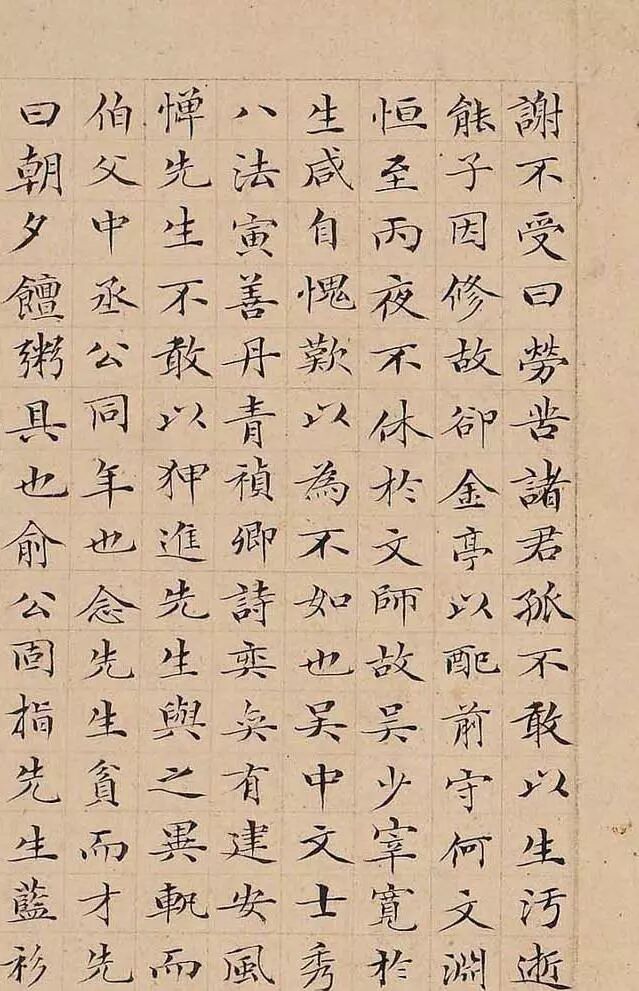 謝不受曰勞苦諸君孤不敢以生汚逝
能子因修故卻金亭以配前守何文淵
恒至丙夜不休於文師故吴少宰寬於
生咸自愧歎以為不如也吴中文士秀
八法寅善丹青禎卿詩奕奕有建安風
憚先生不敢以狎進先生與之異軌而
伯父中丞公同年也念先生貧而才先
曰朝夕饘粥具也俞公固指先生藍衫